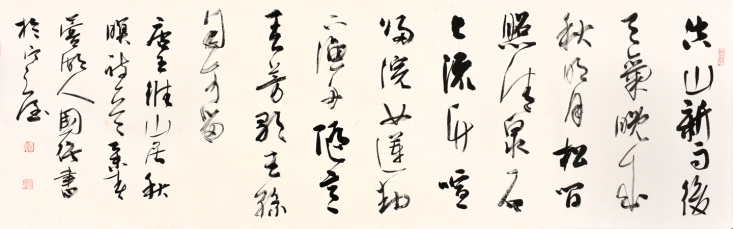 空山新雨後
天氣晚來
秋明月松間
照清泉石
上流竹喧
歸浣女蓮動
下漁舟隨意
春芳歇王孫
自可留
唐王維山居秋
暝詩
人國書
於